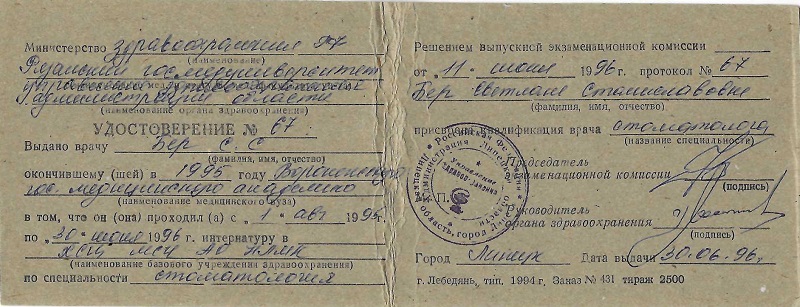 Министерство здравоохранения РФ
(наименование)
Рязанский гос. медуниверситет
Администрации области
(наименование органа здравоохранения)
УДОСТОВЕРЕНИЕ № 67.
Выдано врачу Бер С.С
(фамилия, имя, отчество)
окончившему (шей) в 1995 году Воронежскую
гос. медицинскую академию
(наименование медицинского вуза)
в том, что он (она) проходил (а) с 1 авг 1995
по 30 июня 1996 г. интернатуру в
МСЧ АО НЛМК
(наименование базового учреждения здравоохранения)
по специальности стоматология
Решением выпускной экзаменационной комиссии
от 11 июня 1996 г. протокол № 67
Бер Светлане Станиславовне
(фамилия, имя, отчество)
присвоена квалификация врача стоматолога
(название специальности)
Председатель
экзаменационной комиссии
(подпись)
М. П.
Руководитель
органа здравоохранения
(подпись)
Город Липецк Дата выдачи 30.06.96г.
г. Лебедянь, тип. 1994 г. Заказ № 431 тираж 2500